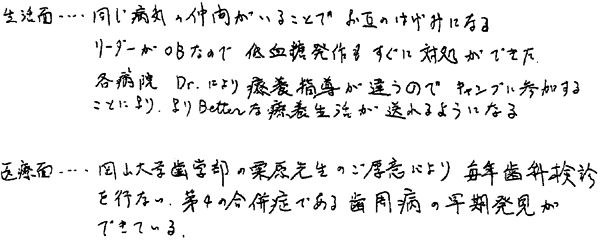 生活面‥‥同じ病気の仲間がいることで お互のはげみになる
リーダーがOBなので 低血糖発作も すぐに 対処ができた.
各病院 Dr.により療養指導が違うので キャンプに参加する
ことにより. よりBetterな療養生活が 送れるようになる
医療面‥‥岡山大学歯学部の栗原先生のご厚意により 毎年歯科検診
を行ない. 第4の合併症である歯周病の早期発見が
できている.